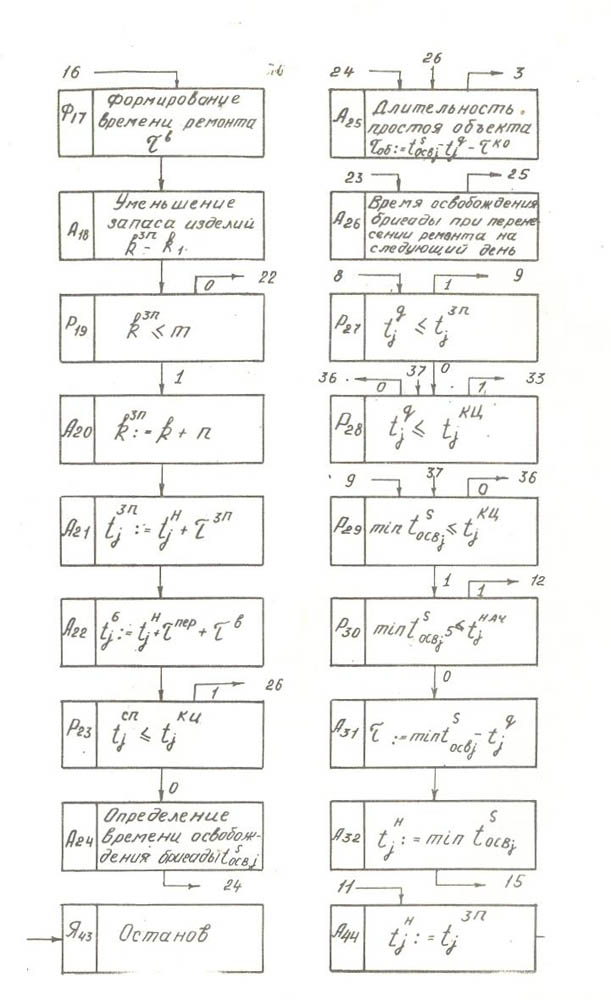 16
Ф17
Формирование
времени ремонта
τᵇ
А18
Уменьшение
запаса изделий
k³ᵖ - k₁.
0
22
Р19
k³ᵖ ≤ m
1
А20
k³ᵖ := k + n
А21
tⱼ³ᵖ := tⱼᴴ + τ³ᵖ
А22
tⱼᵟ := tⱼᴴ + τⁿᵉᵖ + τᵇ
1
26
Р23
tⱼᶜⁿ ≤ tⱼᴷᶸ
0
А24
Определение
времени освобож-
дения бригады tˢосвj
24
Я43
Останов
24
26
3
А25
Длительность
простоя объекта
τоб := tˢосвj - tⱼᵍ - τᴷᴼ
23
25
А26
Время освобождения
бригады при перене-
сении ремонта на
следующий день
8
1
9
Р27
tⱼᵍ ≤ tⱼ³ᵖ
0
36
0
37
1
33
Р28
tⱼᵍ ≤ tⱼᴷᶸ
9
37
0
36
Р29
min tˢосвj ≤ tⱼᴷᶸ
1
1
12
Р30
min tˢосвj s ≤ tⱼᴴᴬᶜ
0
А31
τ := min tˢосвj - tⱼᵍ
А32
tⱼᴴ := min tˢосвj
15
11
А44
tⱼᴴ := tⱼ³ᵖ